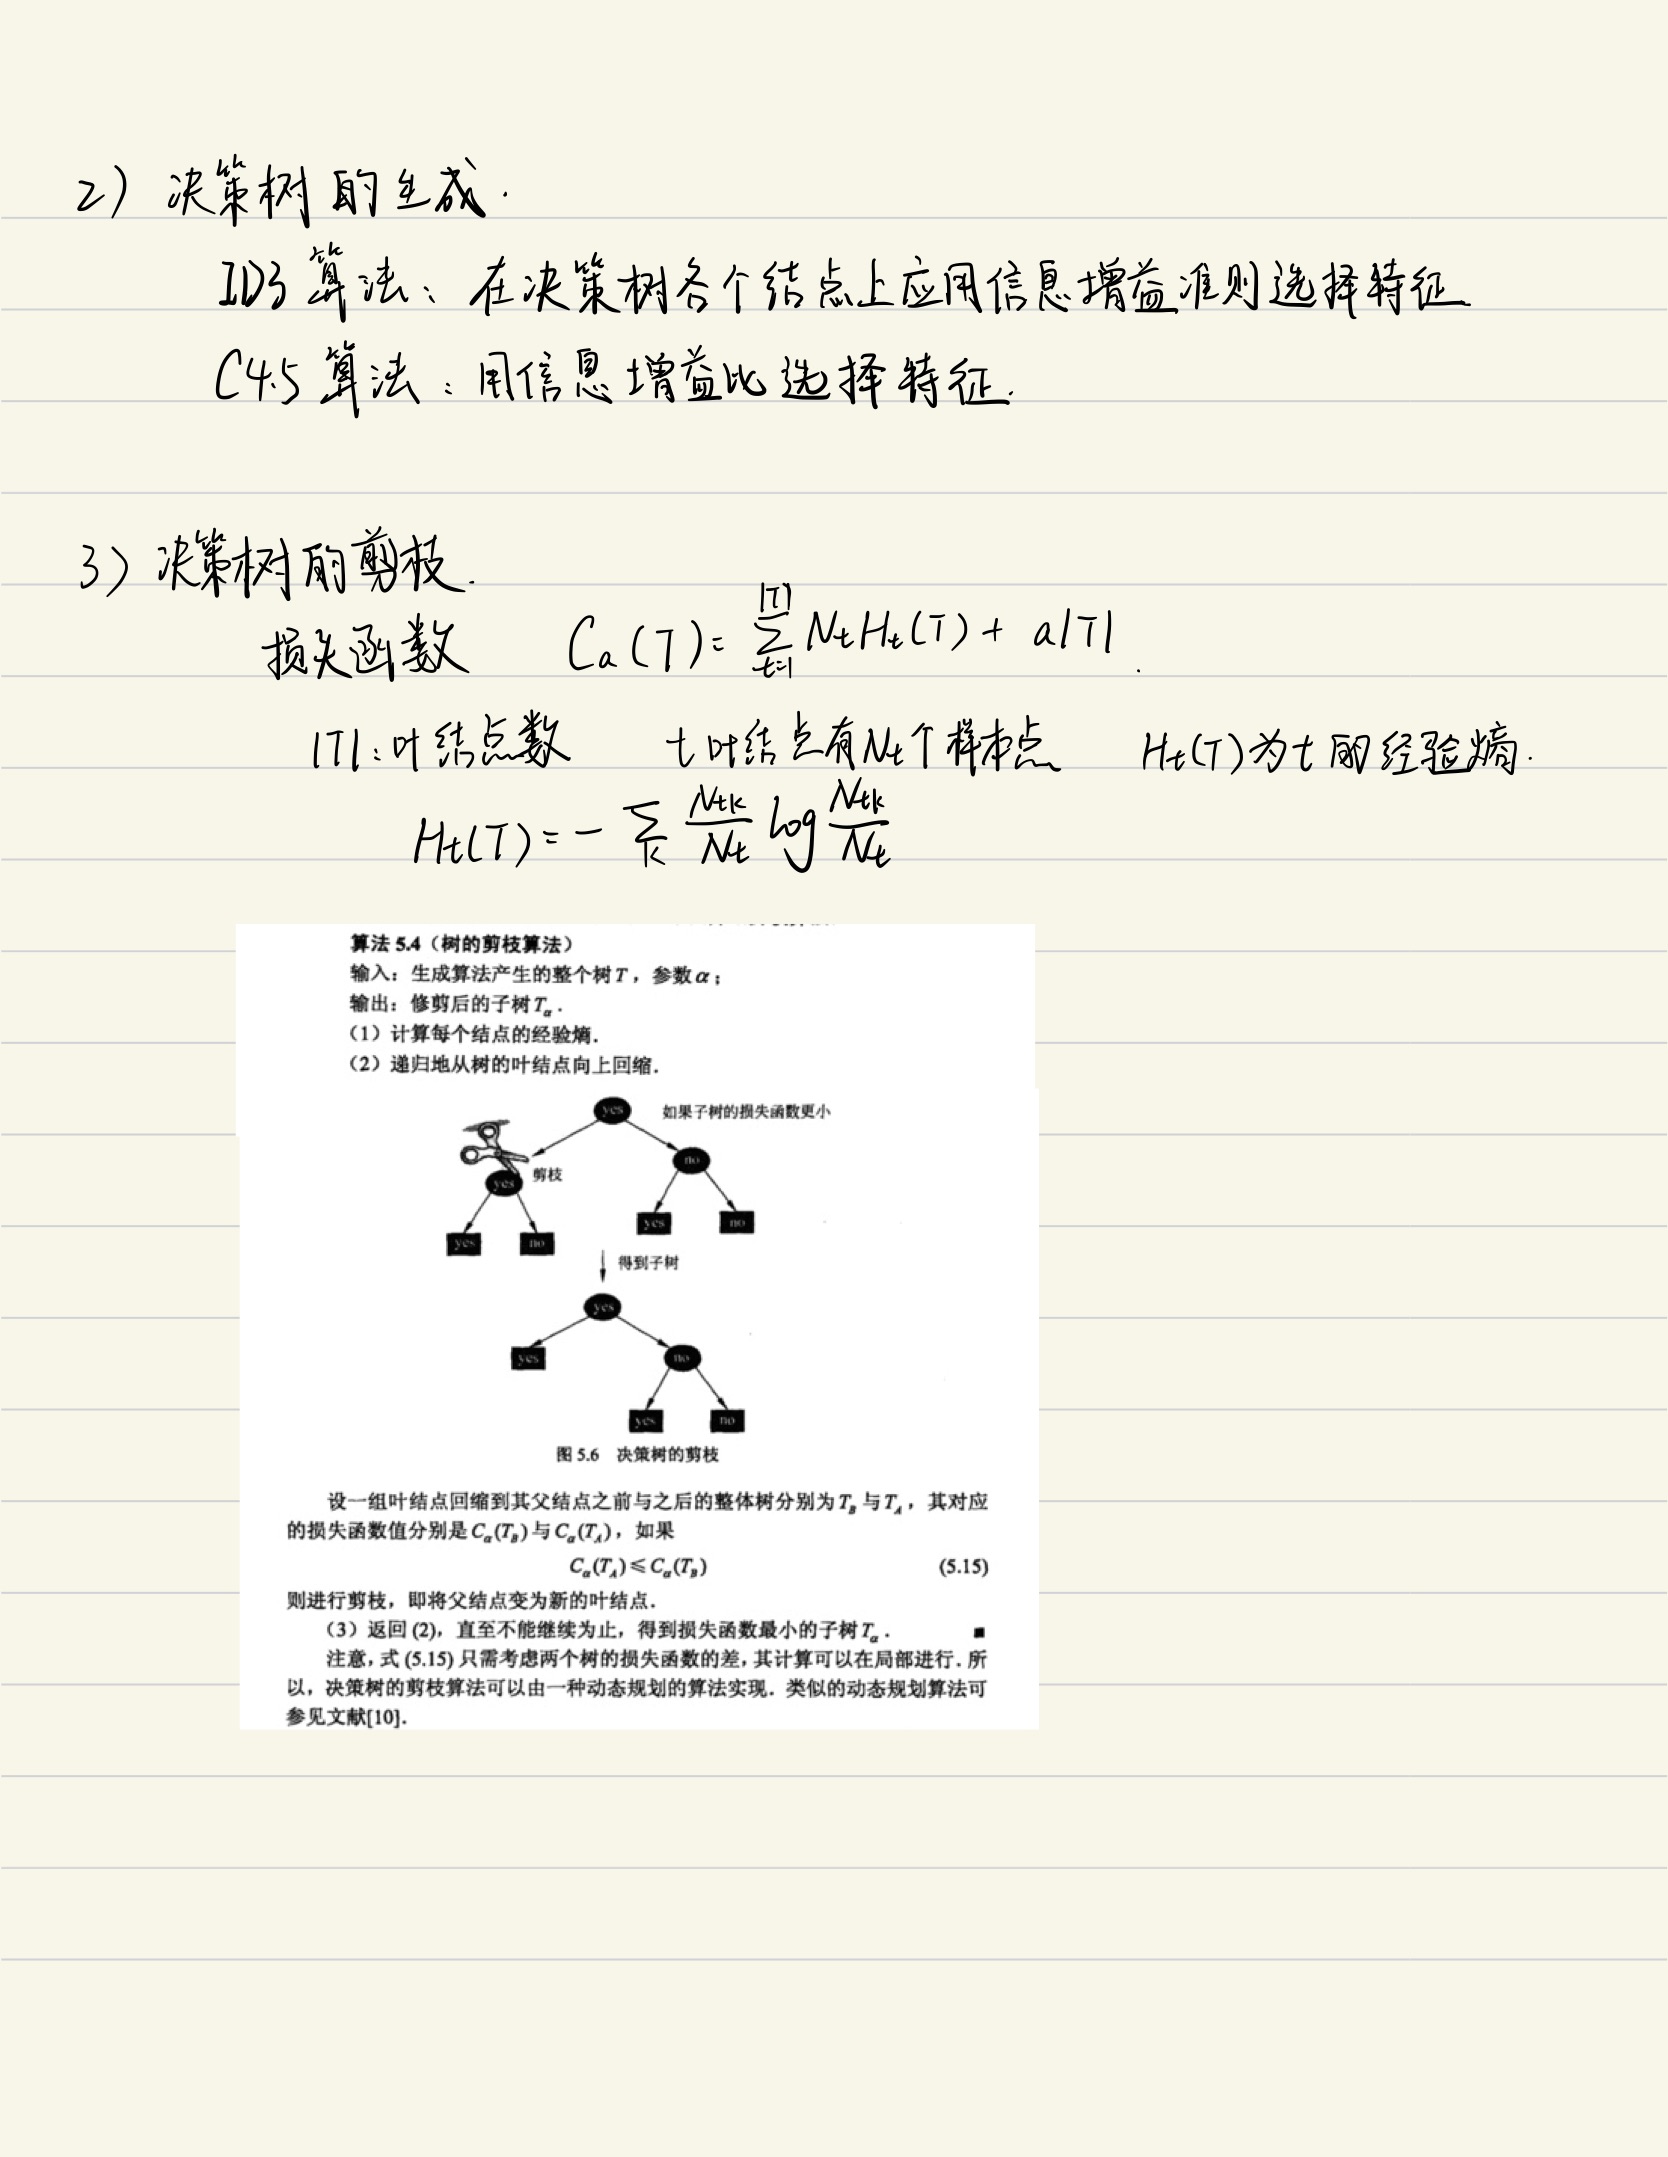 2) 决策树的生成.
ID3算法: 在决策树各个结点上应用信息增益准则选择特征
C4.5算法: 用信息增益比选择特征.
3) 决策树的剪枝.
损失函数 Ca(T)= ∑_{t=1}^{|T|} NtHt(T) + a|T|.
|T|:叶结点数 t叶结点有Nt个样本点 Ht(T)为t的经验熵.
Ht(T)=- ∑_k Ntk/Nt log Ntk/Nt
算法 5.4(树的剪枝算法)
输入:生成算法产生的整个树T,参数α;
输出:修剪后的子树Tα.
(1)计算每个结点的经验熵.
(2)递归地从树的叶结点向上回缩.
yes 如果子树的损失函数更小
no
剪枝
yes
yes no
yes no
得到子树
yes
yes no
yes no
图 5.6 决策树的剪枝
设一组叶结点回缩到其父结点之前与之后的整体树分别为TB与TA,其对应
的损失函数值分别是Cα(TB)与Cα(TA),如果
Cα(TA)≤Cα(TB) (5.15)
则进行剪枝,即将父结点变为新的叶结点.
(3)返回(2),直至不能继续为止,得到损失函数最小的子树Tα. ■
注意,式(5.15)只需考虑两个树的损失函数的差,其计算可以在局部进行.所
以,决策树的剪枝算法可以由一种动态规划的算法实现.类似的动态规划算法可
参见文献[10].